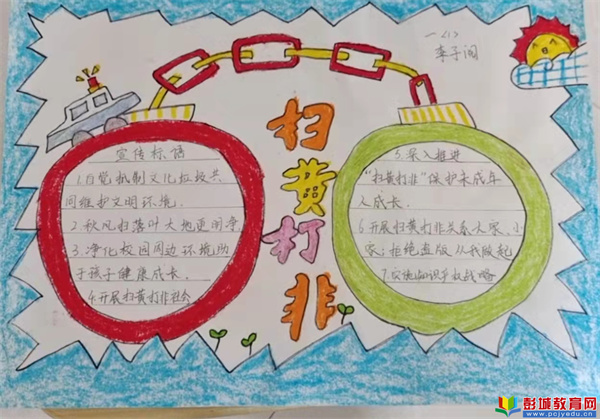 一〈1〉
李子润
扫黄打非
宣传标语
1.自觉抵制文化垃圾共
同维护文明环境.
2.秋风扫落叶大地更明净
3.净化校园周边环境助
于孩子健康成长.
4.开展扫黄打非社会
5.深入推进
“扫黄打非”保护未成年
人成长.
6.开展扫黄打非关系大家、小
家；拒绝盗版从我做起
7.实施知识产权战略
彭城教育网
www.pcjyedu.cn